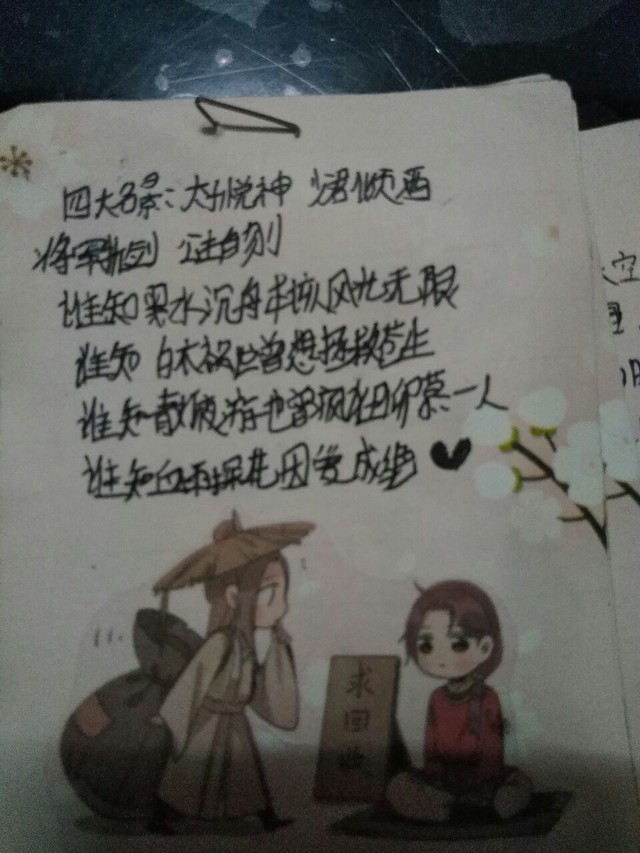 四大名景：太子悦神 少君倾酒
将军折剑 公主自刎
谁知黑水沉舟本该风光无限
谁知白衣祸世曾想拯救苍生
谁知夜游也曾疯狂仰慕一人
谁知血雨探花因爱成绝
求回收
空